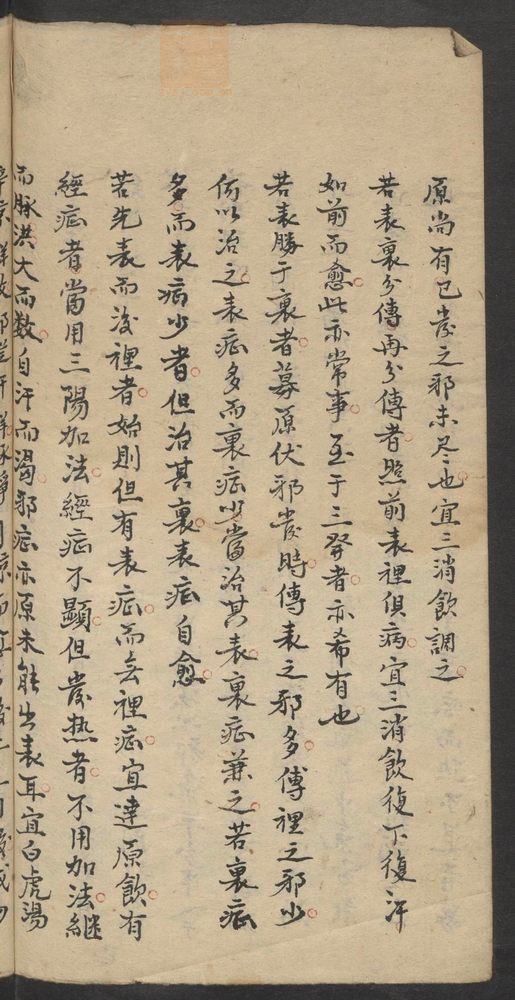 原尚有已發之邪未尽也宜三消飲調之
若表裏分傳再分傳者照前表裡俱病宜三消飲復下復汗
如前而愈此亦常事至于三發者亦希有也
若表勝于裏者募原伏邪發時傳表之邪多傳裡之邪少
何以治之表症多而裏症少當治其表裏症兼之若裏症
多而表病少者但治其裏表症自愈
若先表而後裡者始則但有表症而無裡症宜達原飲有
經症者當用三陽加法經症不顯但發热者不用加法継
而脉洪大而数自汗而渴邪症亦原未能出表耳宜白虎湯